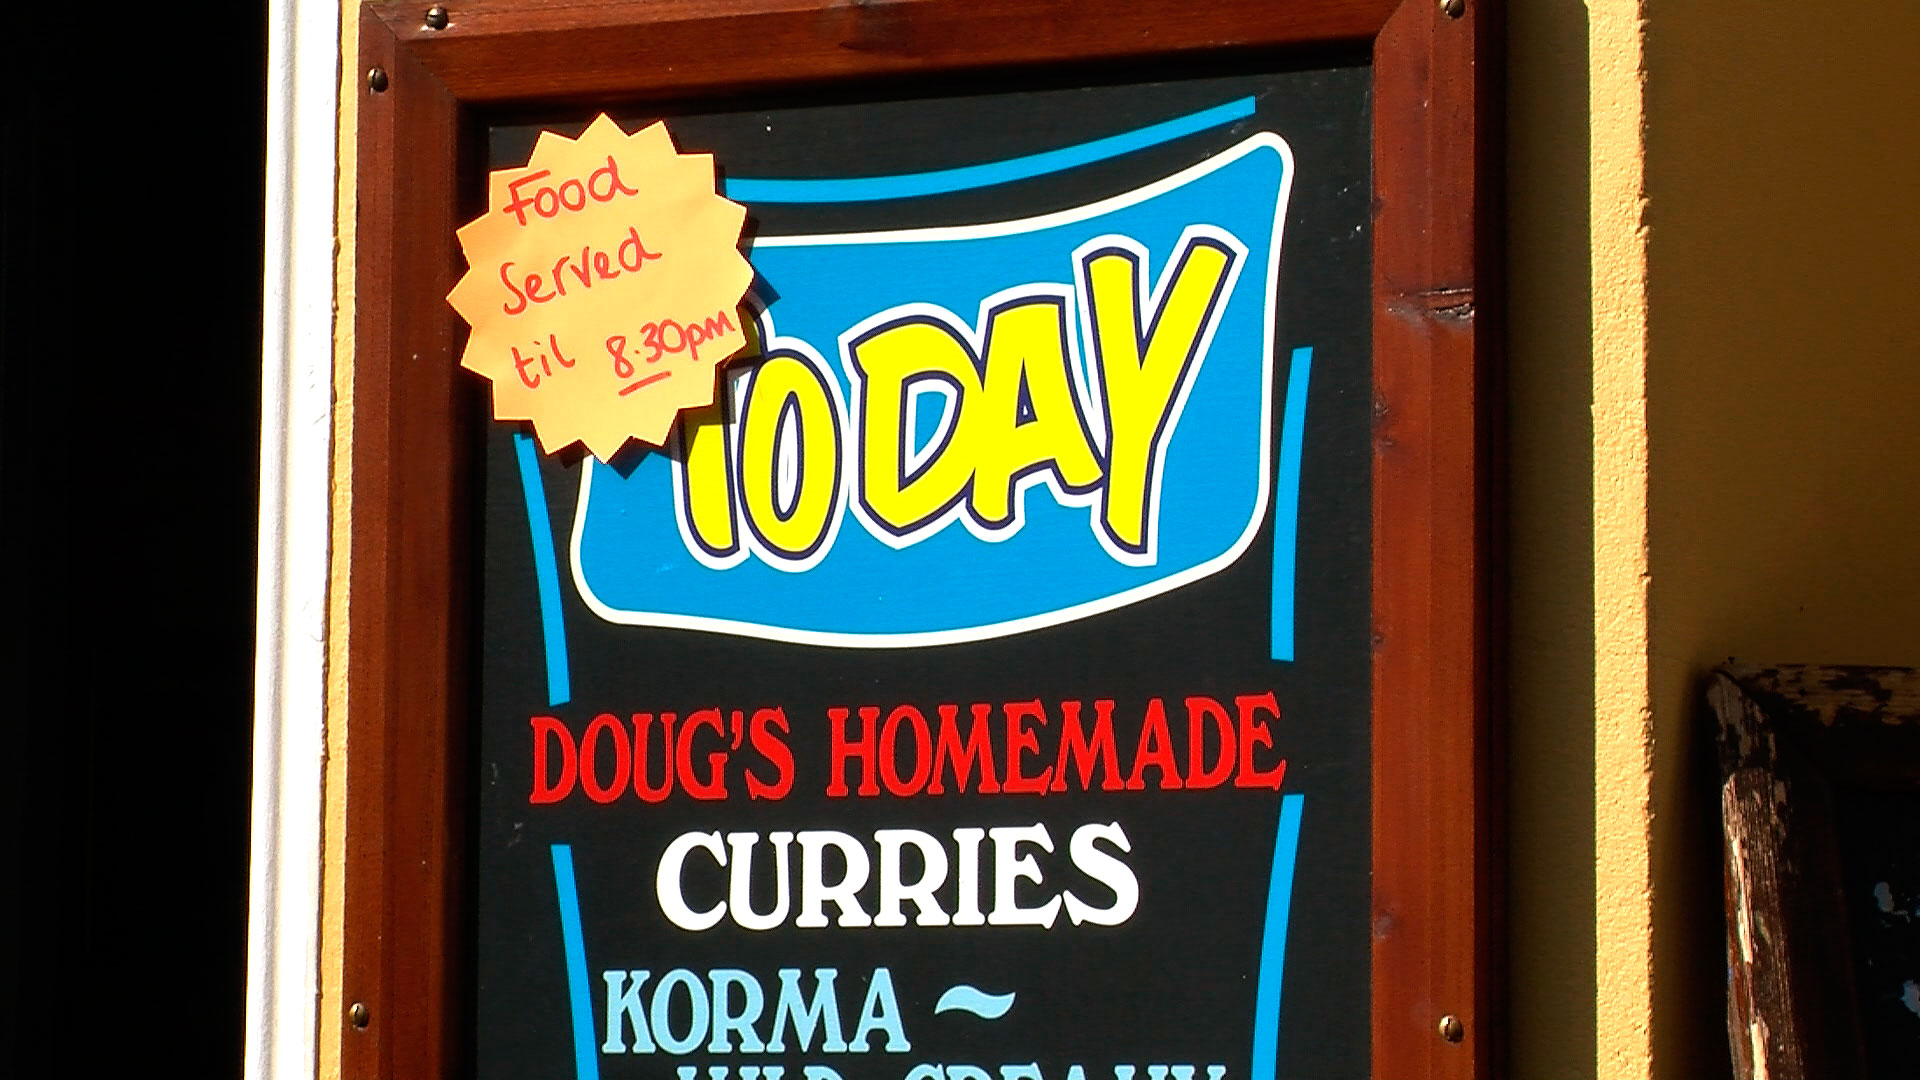 Food
Served
til 8.30pm
TODAY
DOUG'S HOMEMADE
CURRIES
KORMA ~
MILD CREAMY